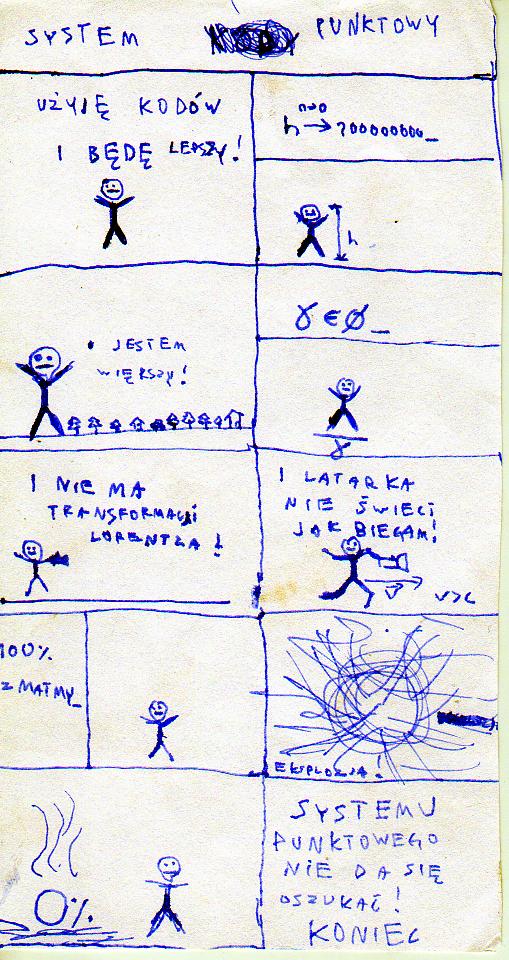 SYSTEM PUNKTOWY
UŻYJĘ KODÓW
I BĘDĘ LEPSZY!
h → 700000000_
h
JESTEM
WIĘKSZY!
γ ∈ ∅_
γ
I NIE MA
TRANSFORMACJI
LORENTZA!
I LATARKA
NIE ŚWIECI
JAK BIEGAM!
V V>C
100%
Z MATMY_
EKSPLOZJA!
0%
SYSTEMU
PUNKTOWEGO
NIE DA SIĘ
OSZUKAĆ!
KONIEC